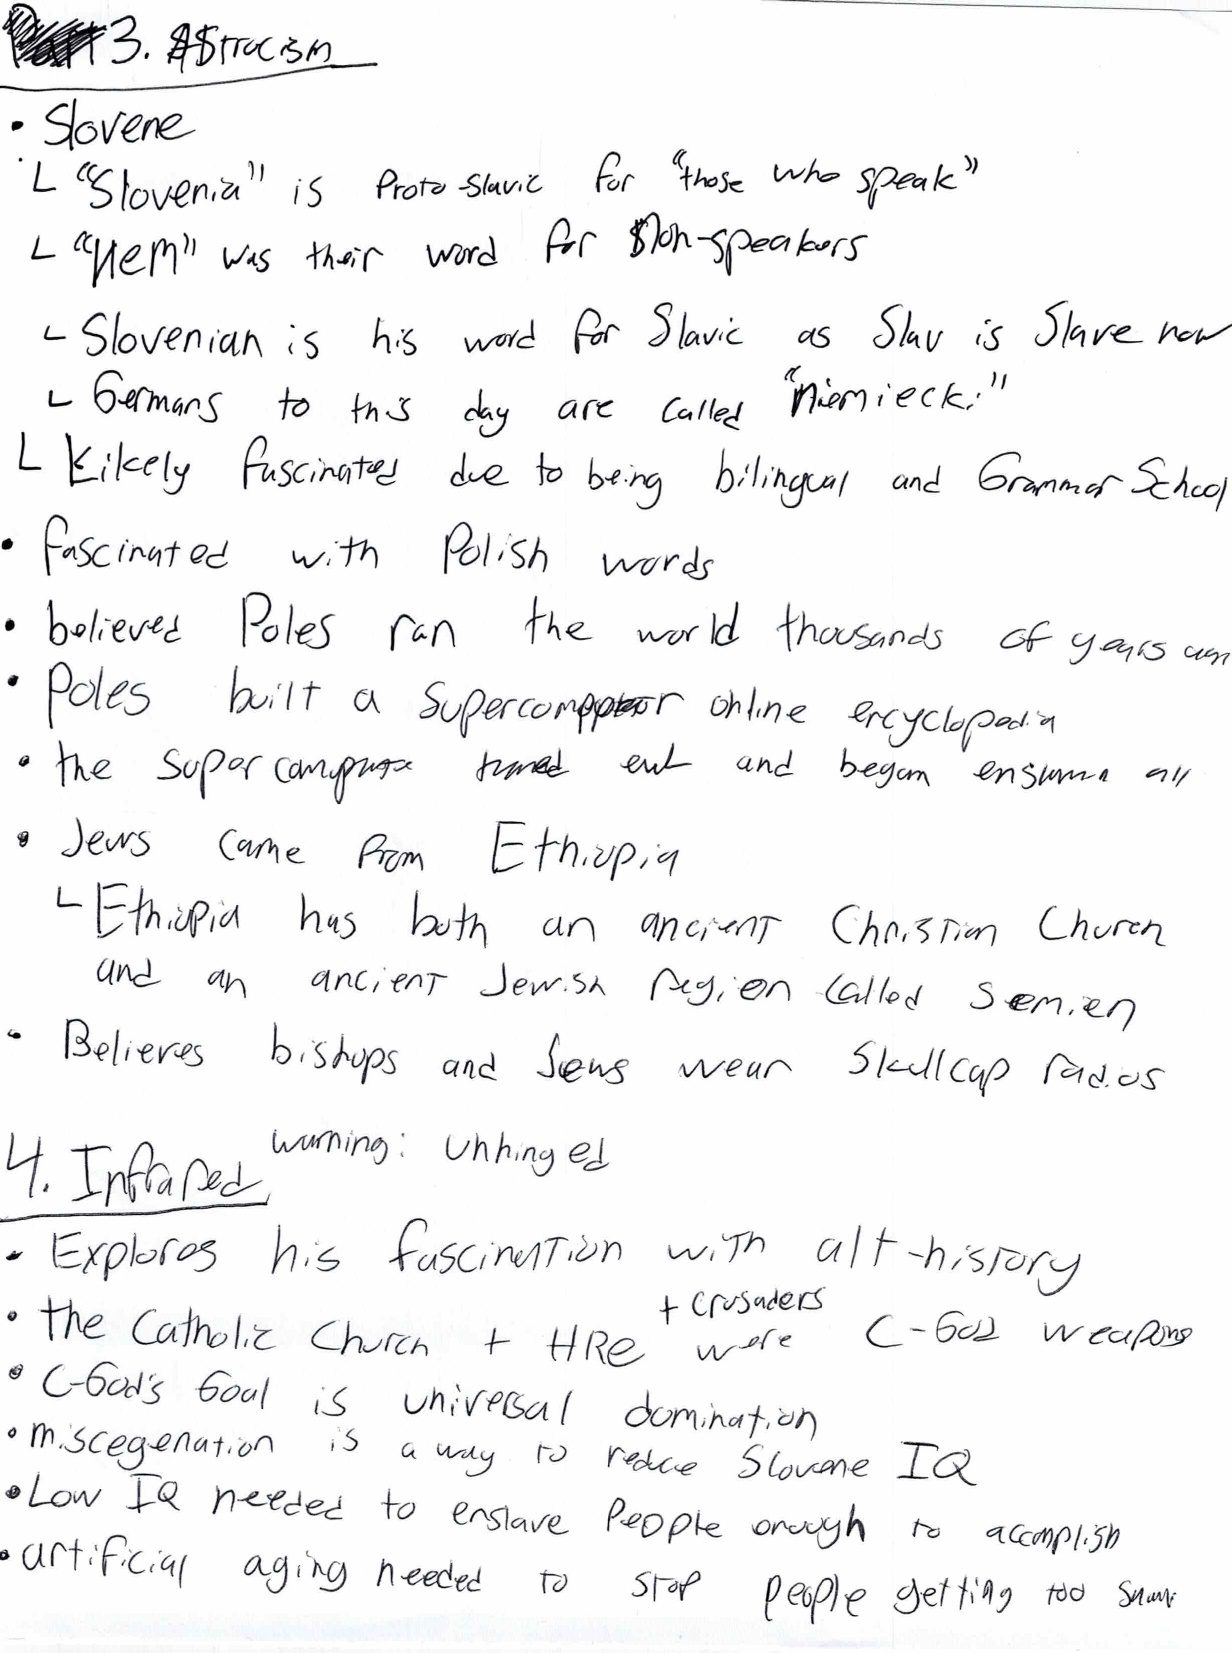 3. AStrocism
• Slovene
└ "Slovenia" is Proto-Slavic for "those who speak"
└ "nem" was their word for Non-speakers
└ Slovenian is his word for Slavic as Slav is Slave now
└ Germans to this day are called "niemiecki"
└ Likely fascinated due to being bilingual and Grammar School
• fascinated with Polish words
• believed Poles ran the world thousands of years
• Poles built a Supercomputer online encyclopedia
• the Supercomputer turned evil and began all
• Jews came from Ethiopia
└ Ethiopia has both an ancient Christian Church
and an ancient Jewish region called Semien
• Believes bishops and Jews wear Skullcap radios
4. Infrared warning: Unhinged
• Explores his fascination with alt-history
+ Crusaders
• the Catholic Church + HRE were C-God weapons
• C-God's Goal is universal domination
• miscegenation is a way to reduce Slovene IQ
• Low IQ needed to enslave People enough to accomplish
• artificial aging needed to stop people getting too